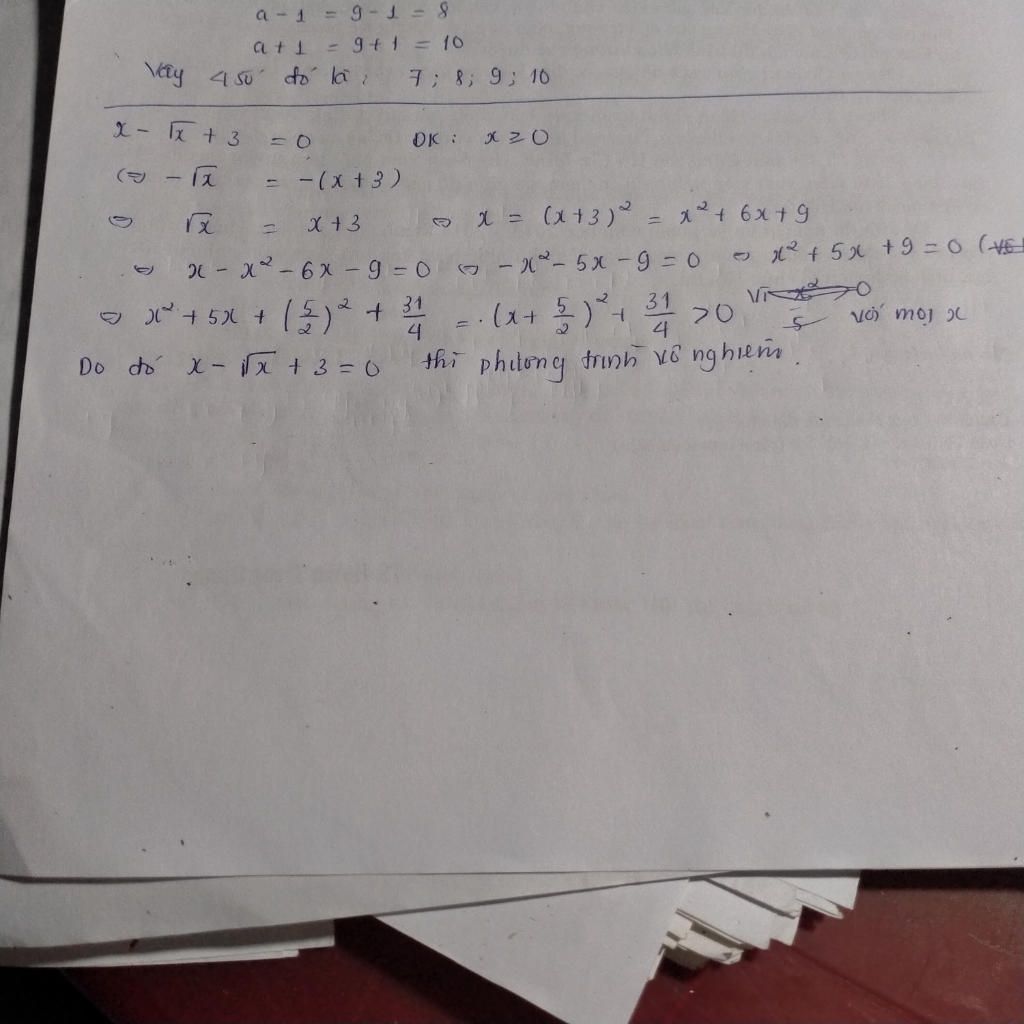 a - 1 = 9 - 1 = 8
a + 1 = 9 + 1 = 10
Vậy 4 số đó là : 7 ; 8 ; 9 ; 10
x - √x + 3 = 0 ĐK : x ≥ 0
⇔ -√x = -(x + 3)
⇔ √x = x + 3 ⇔ x = (x+3)² = x² + 6x + 9
⇔ x - x² - 6x - 9 = 0 ⇔ -x² - 5x - 9 = 0 ⇔ x² + 5x + 9 = 0 (
⇔ x² + 5x + (5/2)² + 31/4 = (x + 5/2)² + 31/4 > 0 với mọi x
Do đó x - √x + 3 = 0 thì phương trình vô nghiệm.